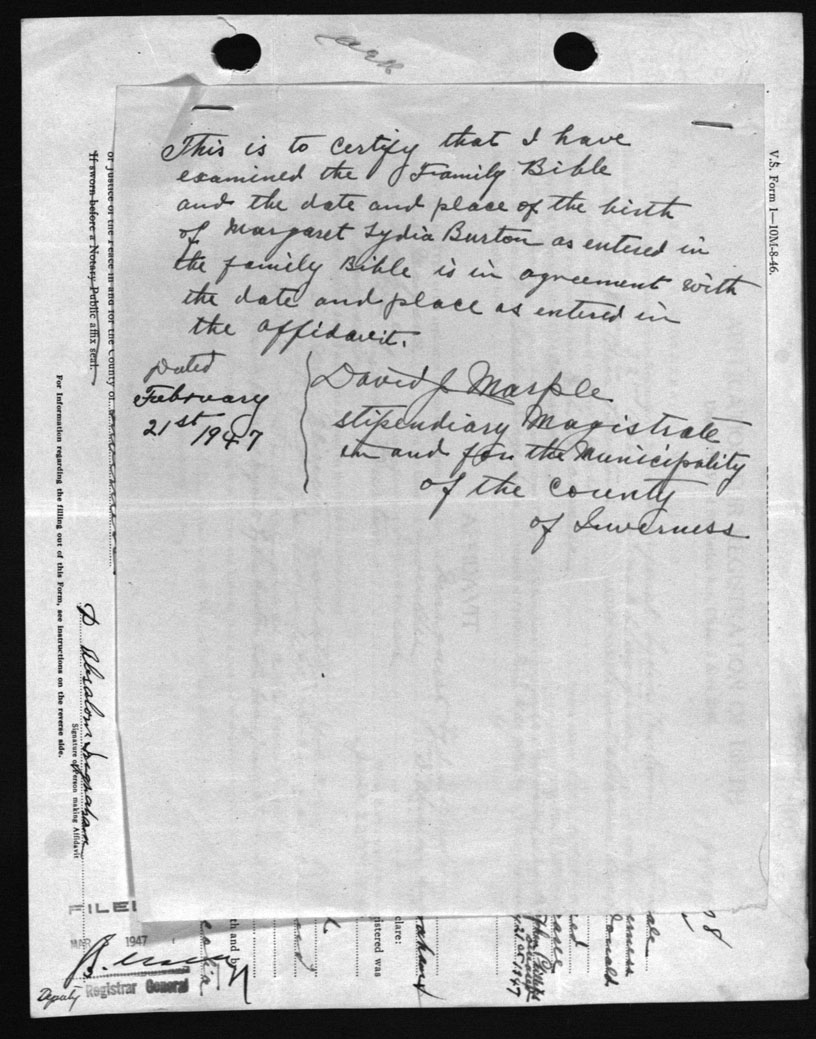 This is to certify that I have
examined the Family Bible
and the date and place of the birth
of Margaret Lydia Burton as entered in
the family Bible is in agreement with
the date and place as entered in
the affidavit.
Dated
February
21st 1947
David J Marple
stipendiary Magistrate
in and for the Municipality
of the County
of Inverness
V.S. Form 1—10M-8-46.
or Justice of the Peace in and for the County of
If sworn before a Notary Public affix seal.
For Information regarding the filling out of this Form, see instructions on the reverse side.
D Absalom Ingraham
Signature of Person making Affidavit
FILED
MAR 1947
Deputy Registrar General
th and b
istered was
clare: